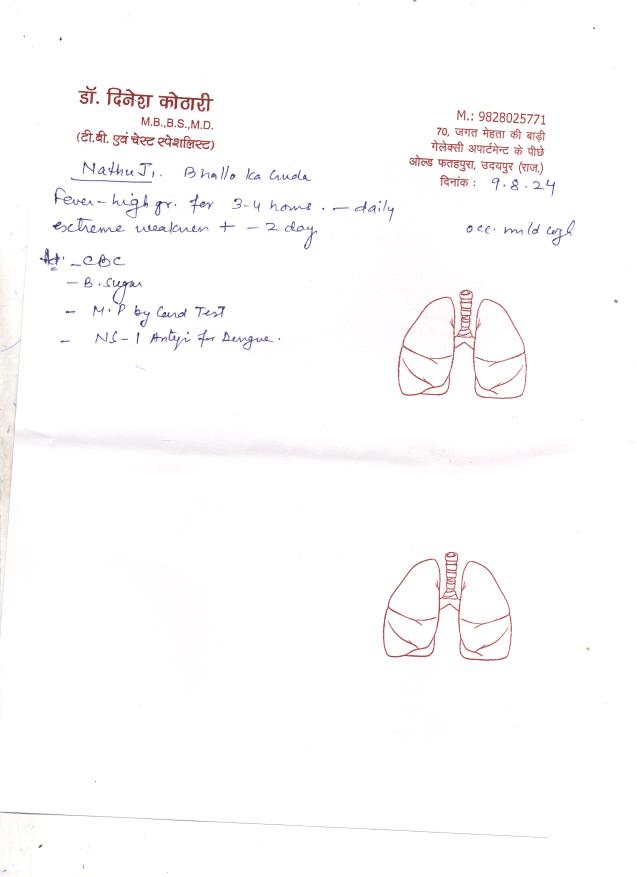 डॉ. दिनेश कोठारी
M.B.,B.S.,M.D.
(टी.बी. एवं चेस्ट स्पेशलिस्ट)
M.: 9828025771
70, जगत मेहता की बाड़ी
गेलेक्सी अपार्टमेन्ट के पीछे
ओल्ड फतहपुरा, उदयपुर (राज.)
दिनांक : 9.8.24
Nathu Ji. Bhallo ka Guda
Fever - high gr. for 3-4 hours. - daily
extreme weakness + - 2 day
occ. mild cough
Ad. - CBC
- B. Sugar
- M.P by Card Test
- NS-1 Antegi for Dengue.